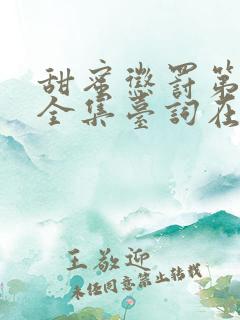 甜蜜懲罰第
全集臺詞在
王敬迎
未经同意禁止转载